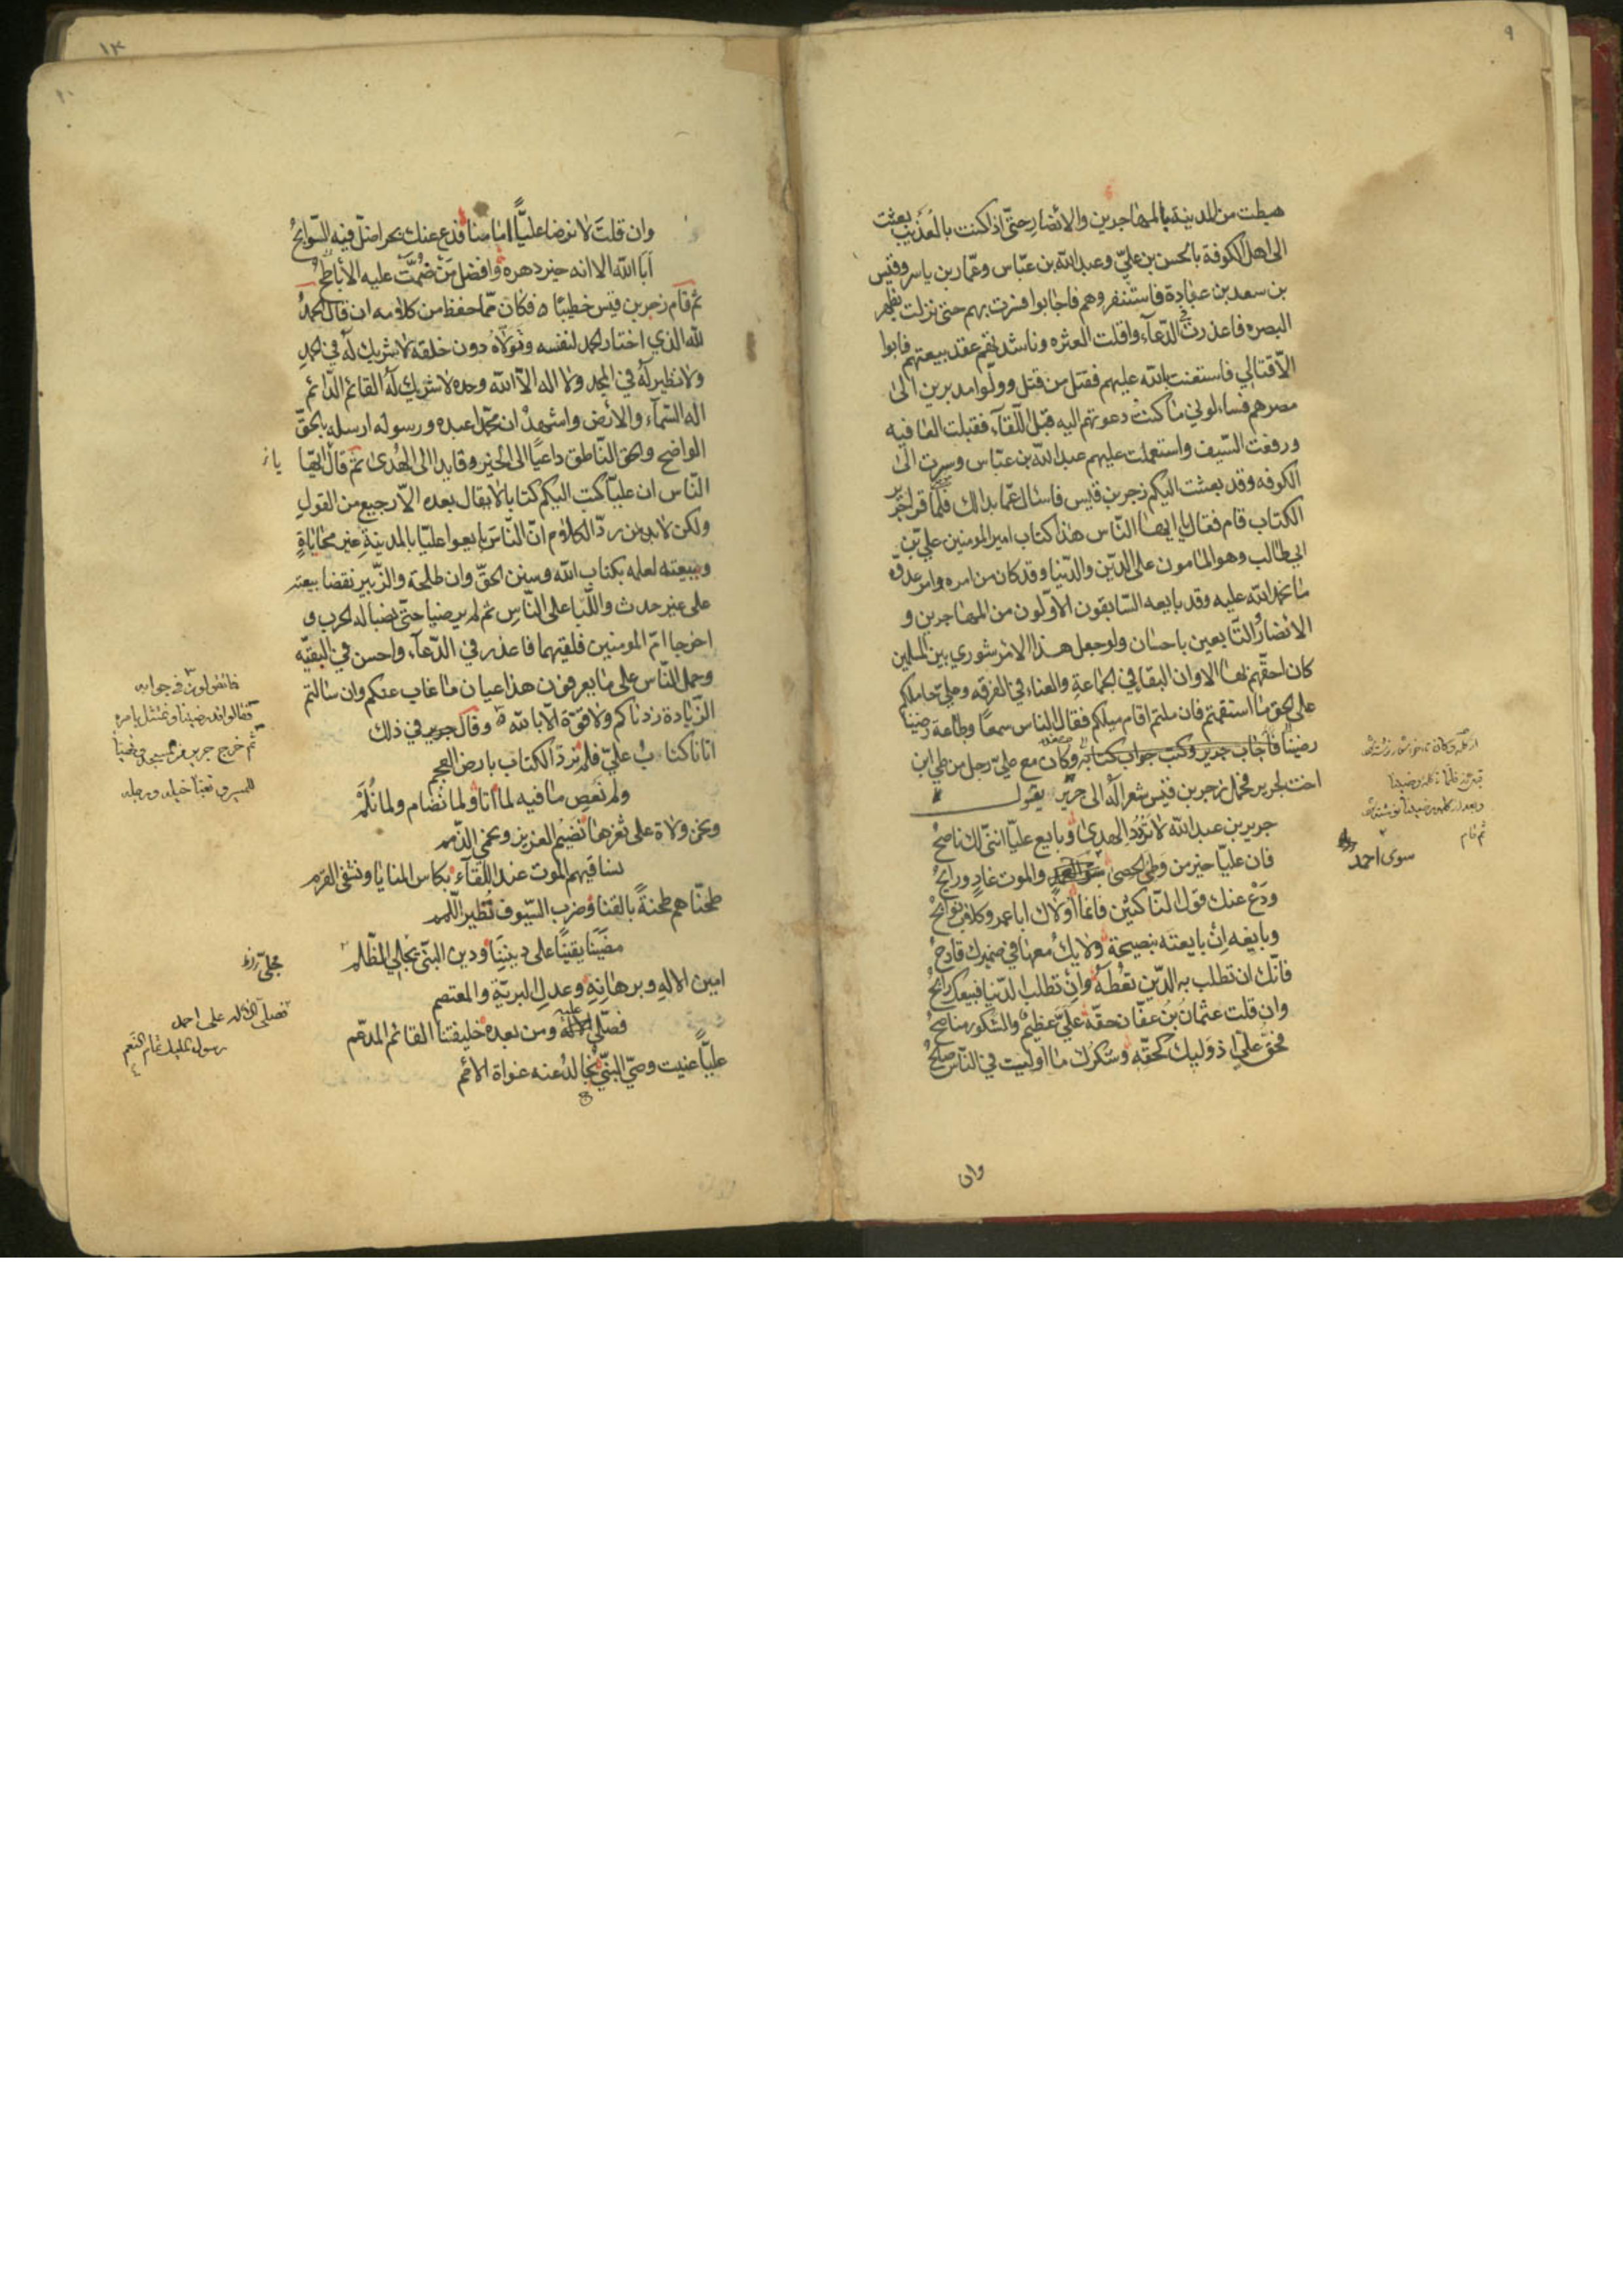 ٩
هبطت من المدينة بالمهاجرين والأنصار حتّى اذا كنت بالعذيب بعثت
الى اهل الكوفة بالحسن بن عليّ وعبد الله بن عبّاس وعمّار بن ياسر وقيس
بن سعد بن عبادة فاستنفروهم فاجابوا فسرت بهم حتى نزلت بظهر
البصره فاعذرت في الدّعاء واقلت العثره وناشدتهم عقد بيعتهم فابوا
الاّ قتالي فاستعنت بالله عليهم فقتل من قتل وولّوا مدبرين الى
مصرهم فساءلوني ما كنت دعوتهم اليه قبل اللّقاء فقبلت العافيه
ورفعت السّيف واستعملت عليهم عبد الله بن عبّاس وسرت الى
الكوفه وقد بعثت اليكم زجر بن قيس فاسال عمّا بدا لك فلمّا قرا جرير
الكتاب قام فقال يا ايها النّاس هذا كتاب امير المومنين علي بن
ابي طالب وهو المامون على الدّين والدّنيا وقد كان من امره وامر عدوّه
ما نحمد الله عليه وقد بايعه السّابقون الاوّلون من المهاجرين و
الانصار التّابعين باحسان ولو جعل هذا الامر شوري بين المسلمين
كان احقّهم بها الا وان البقا في الجماعة والفناء في الفرقه وعلي حاملكم
على الحق ما استقمتم فان ملتم اقام ميلكم فقال الناس سمعًا وطاعة رضينا
رضينا فاجاب جرير وكتب جواب كتابه وكان مع علي رجل من طي ابن
اخت لجرير فحمل زجر بن قيس شعرا له الى جرير يقول
جرير بن عبد الله لا تردد الهدى وبايع عليّا انني لك ناصح
فان عليّا خير من وطئ الحصى سوى احمد والموت غاد ورايح
ودع عنك قول النّاكثين فانما اولاك ابا عمرو كلاب نوابح
وبايعه ان بايعته بنصيحة ولا يك معها في ضميرك قادح
فانّك ان تطلب به الدّين تعطه وان تطلب الدّنيا فبيعك رابح
وان قلت عثمان بن عفّان حقّه عليّ عظيم والشّكور مناصح
فحق علي اذ وليك كحقّه وشكرك ما اوليت في النّاس صالح
سوى احمد
ثم قام
وان
١٣
١٠
وان قلت لا نرضا عليّاً امامنا فدع عنك بحرا ضلّ فيه السّوابح
ابا الله الا انه خير دهره وافضل من ضمّت عليه الأباطح
ثم قام زجر بن قيس خطيبًا فكان ممّا حفظ من كلامه ان قال الحمد
لله الذي اختار الحمد لنفسه وتولّاه دون خلقه لا شريك له في الحمد
ولا نظير له في المجد ولا اله الاّ الله وحده لا شريك له القائم الدّائم
اله السّماء والارض واشهد ان محمّدا عبده ورسوله ارسله بالحقّ
الواضح والحق النّاطق داعيًا الى الخير وقايدا الى الهدى ثم قال ايّها
النّاس ان عليّا كتب اليكم كتابا لا يقال بعده الاّ رجيع من القول
ولكن لا بد من ردّ الكلام انّ النّاس بايعوا عليّا بالمدينة غير محاباة
ببيعته لعلمه بكتاب الله وسنن الحقّ وان طلحة والزّبير نقضا بيعته
على غير حدث والّبا على النّاس ثم لم يرضيا حتّى نصبا له الحرب و
اخرجا امّ المومنين فلقيهما فاعذر في الدّعاء واحسن في البقيّه
وحمل النّاس على ما يعرفون هذا عيان ما غاب عنكم وان سالتم
الزّيادة زدناكم ولا قوّة الاّ بالله وقال جرير في ذلك
اتانا كتاب عليّ فلم نردّ الكتاب بارض العجم
ولم نعص ما فيه لما اتا ولما نضام ولما نلم
ونحن ولاة على ثغرها نضيم العزيز ونحمي الذّمم
نساقيهم الموت عند اللّقاء بكاس المنايا ونشفى القرم
طحنّاهم طحنةً بالقنا وضرب السّيوف تطير اللّمم
مضينا يقينًا على ديننا ودين النبّي مجلّي الظّلم
امين الاله وبرهانه وعدل البريّة والمعتصم
فصلّى الاله عليه ومن بعده خليفتنا القائم المدّعم
عليّاً عنيت وصيّ النبّي نجالد عنه غواة الأمم
فقالوا قد رضينا ونمتثل بامره
مجلّي
فصلّى الاله على احمد
رسول المليك تمام النّعم